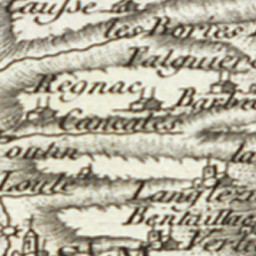 Causse
les Bories
Falguiere
Regnac
Barba
Cancates
outin
la
Loule
Langlez
Bentaillac
Verl
St M